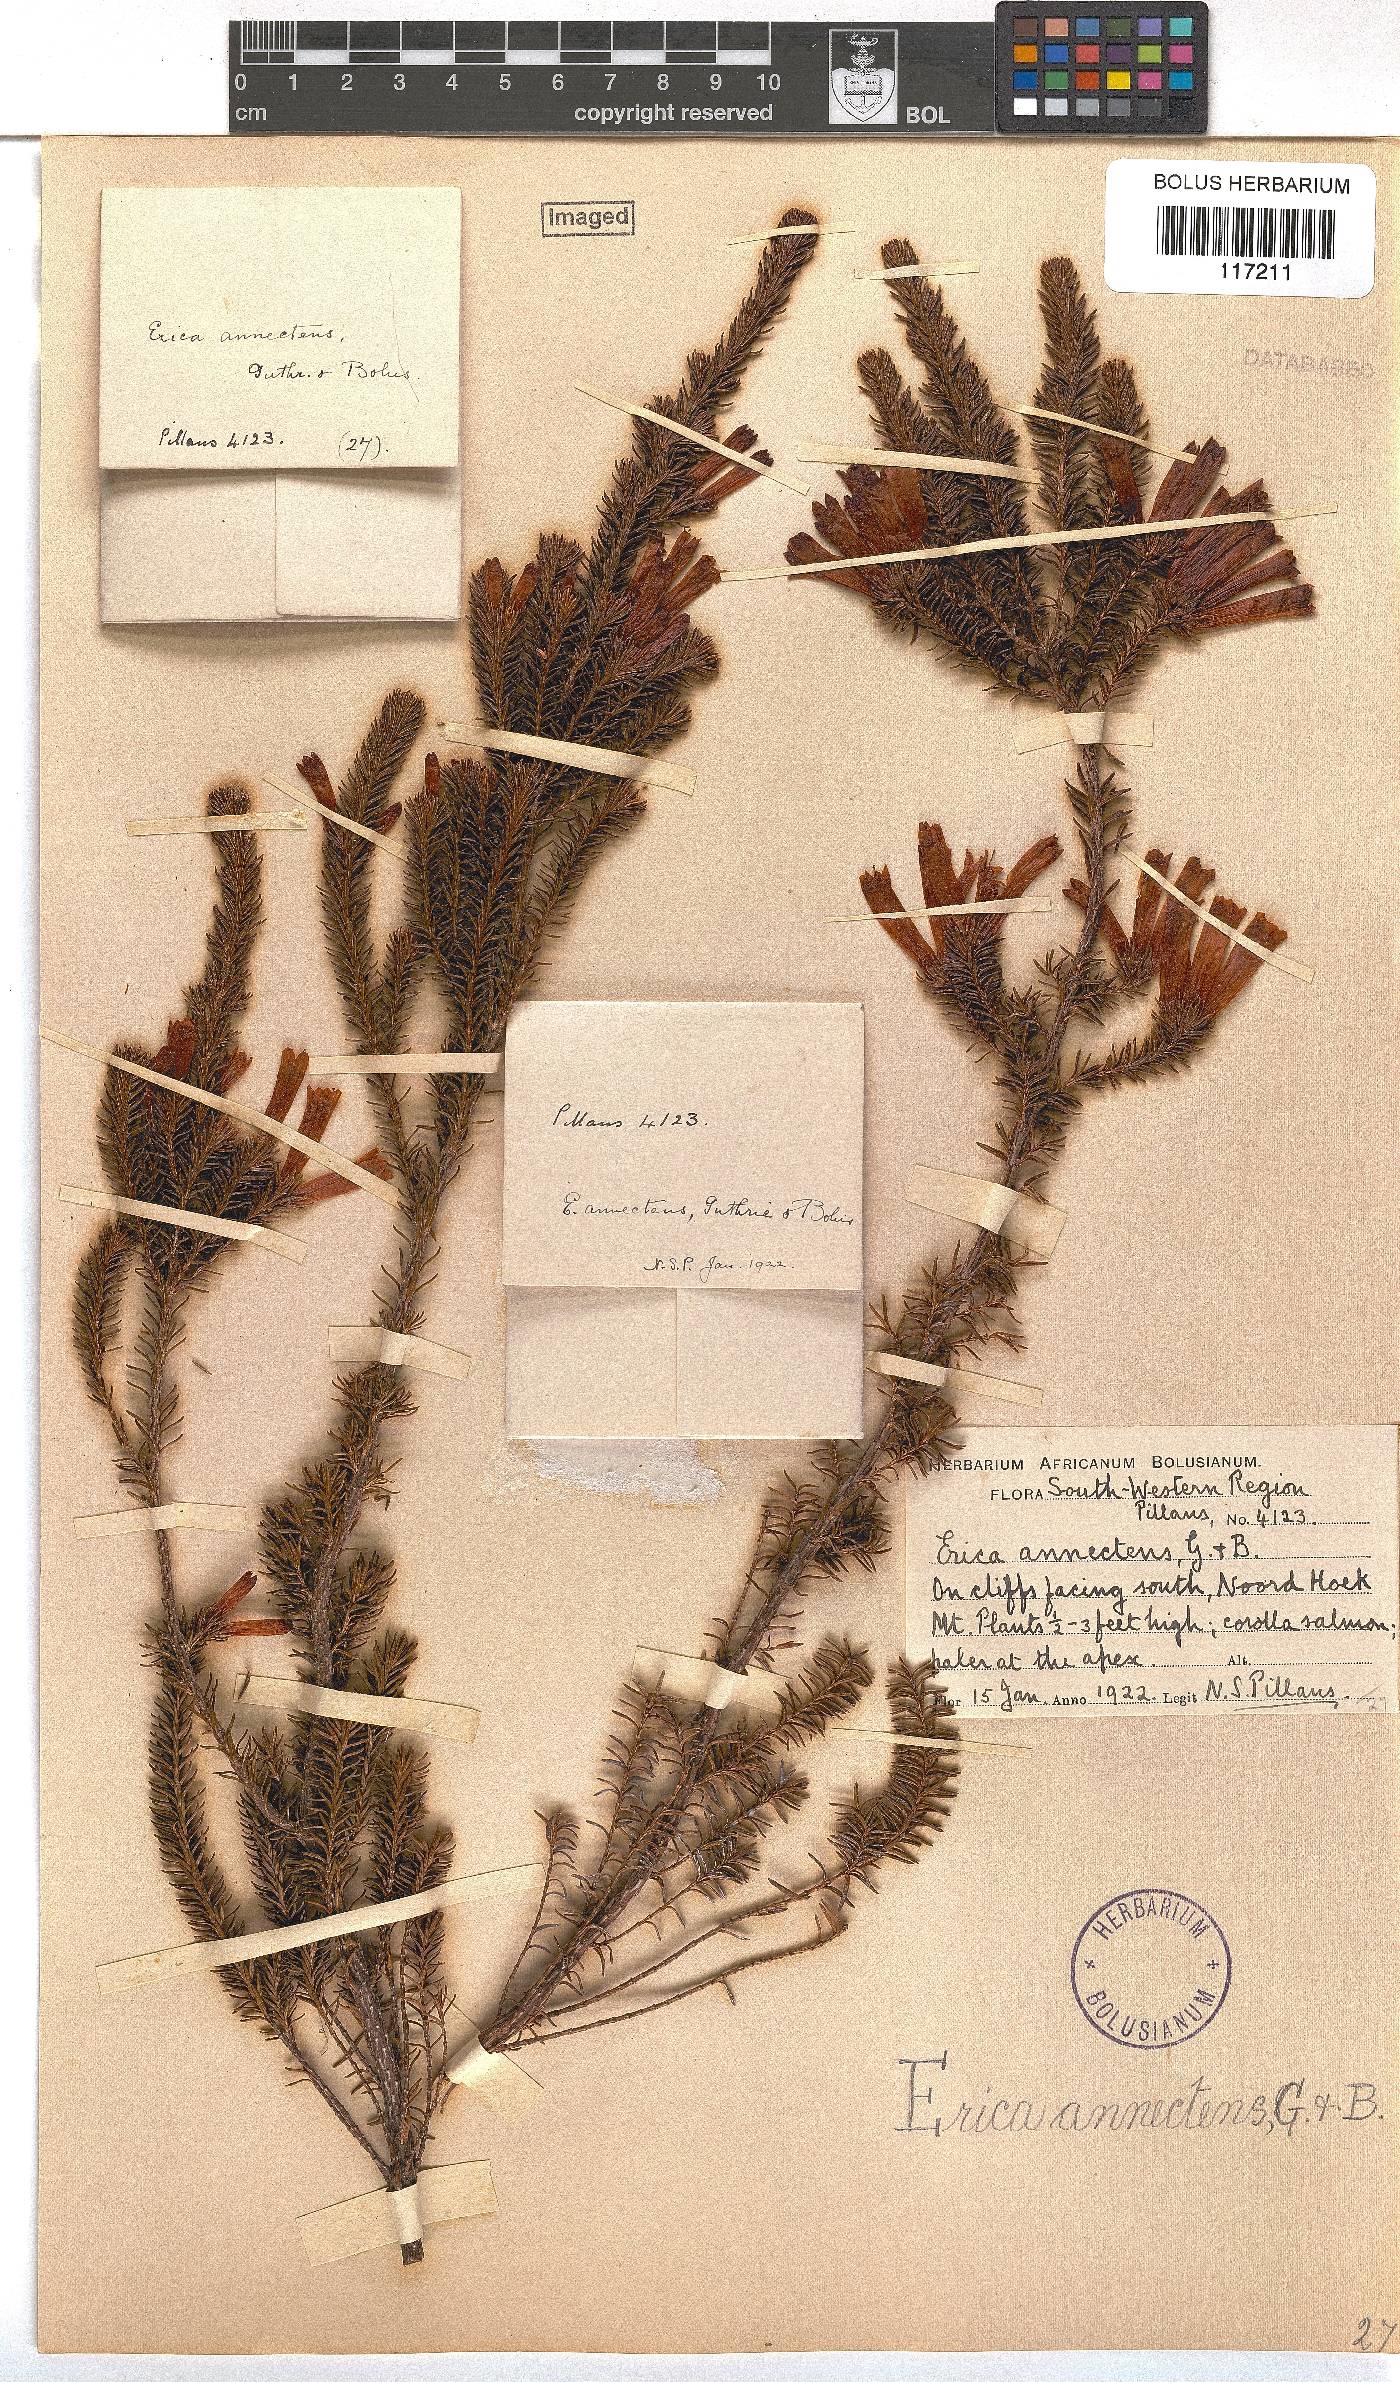 0 1 2 3 4 5 6 7 8 9 10
cm
copyright reserved
BOL
BOLUS HERBARIUM
117211
Imaged
DATABASED
Erica annectens,
Guthr. & Bolus.
Pillans 4123. (27).
Pillans 4123.
E. annectens, Guthrie & Bolus
N.S.P. Jan. 1922.
HERBARIUM AFRICANUM BOLUSIANUM.
FLORA South-Western Region
Pillans, No. 4123.
Erica annectens, G. & B.
On cliffs facing south, Noord Hoek
Mt. Plants ½-3 feet high; corolla salmon;
paler at the apex. Alt.
Flor 15 Jan. Anno 1922. Legit N.S. Pillans.
HERBARIUM
BOLUSIANUM
Erica annectens, G. & B.
27